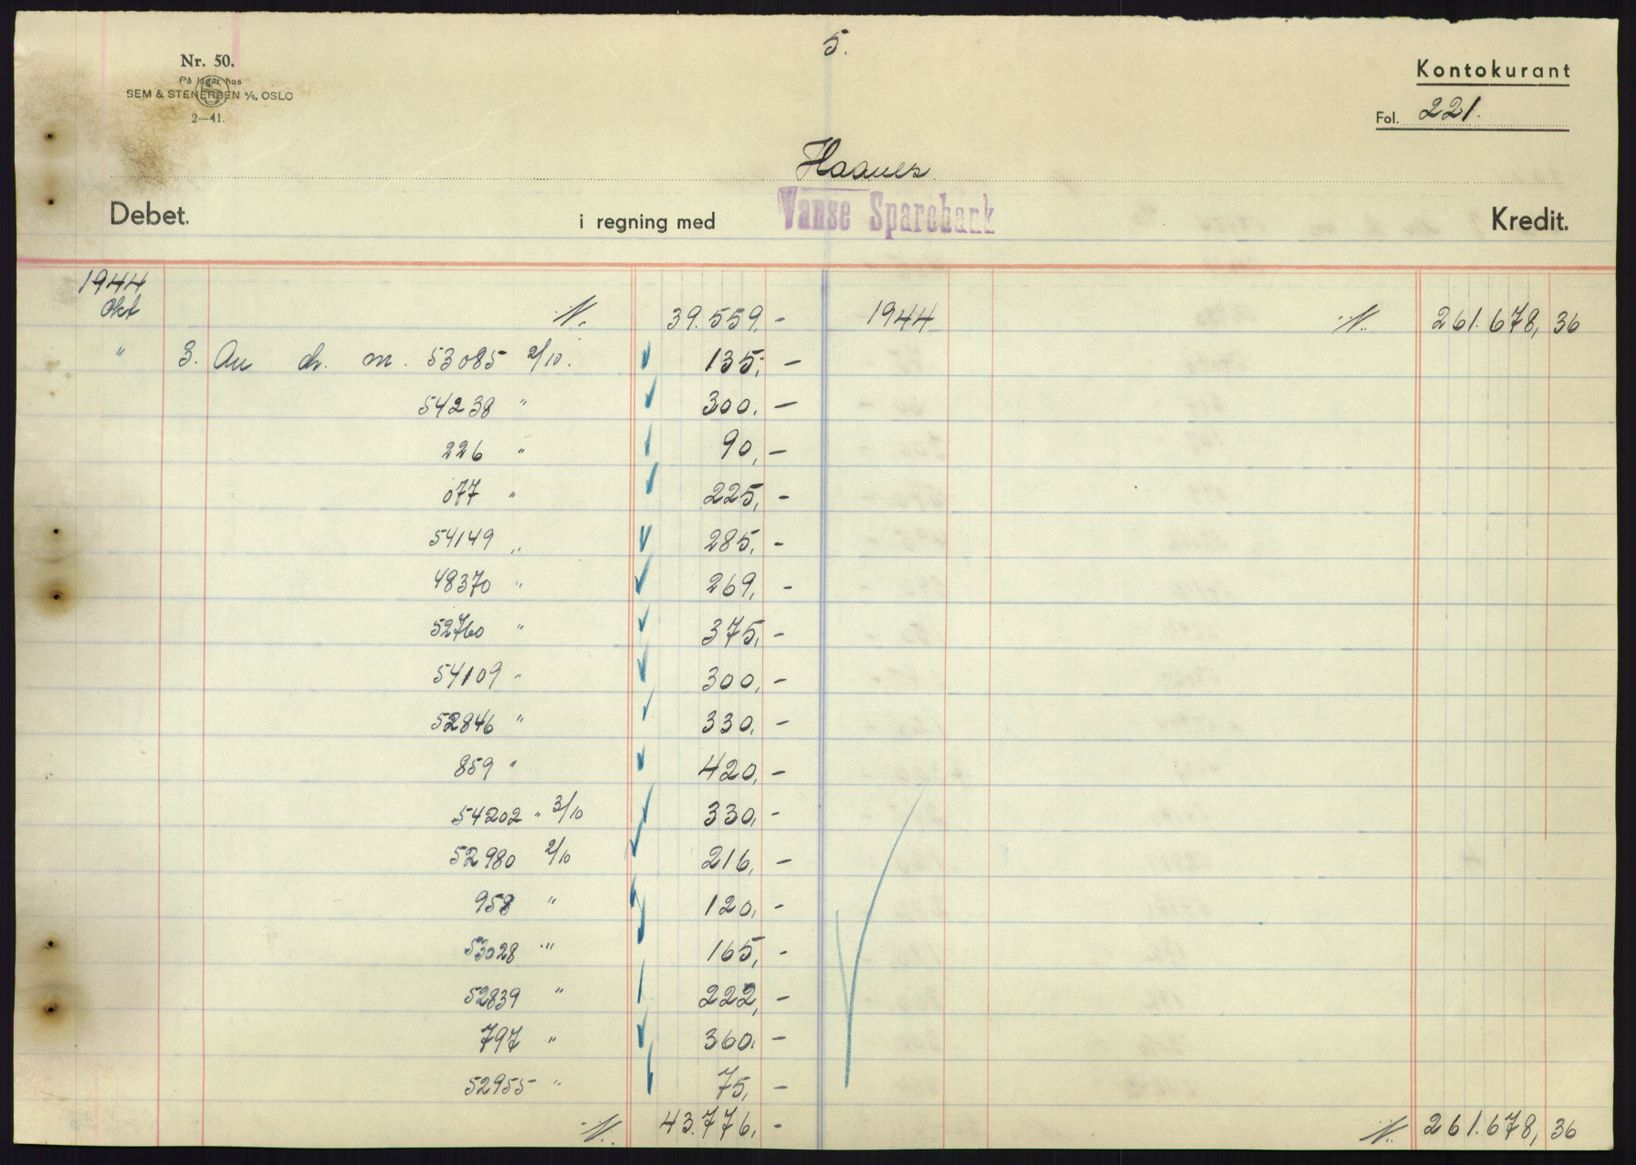 5.
Nr. 50.
På lager hos
SEM & STENERSEN A/S, OSLO
2—41.
Kontokurant
Fol. 221.
Haanes
Debet. i regning med Vanse Sparebank Kredit.
1944
Okt N. 39.559,- 1944 N. 261.678,36
" 3. An ch. m. 53085 2/10. 135,-
54238 " 300,-
226 " 90,-
077 " 225,-
54149 " 285,-
48370 " 269,-
52760 " 375,-
54109 " 300,-
52846 " 330,-
859 " 420,-
54202 " 3/10 330,-
52980 2/10 216,-
958 " 120,-
53028 " 165,-
52839 " 222,-
797 " 360,-
52955 " 75,-
N. 43.776,- N. 261.678,36